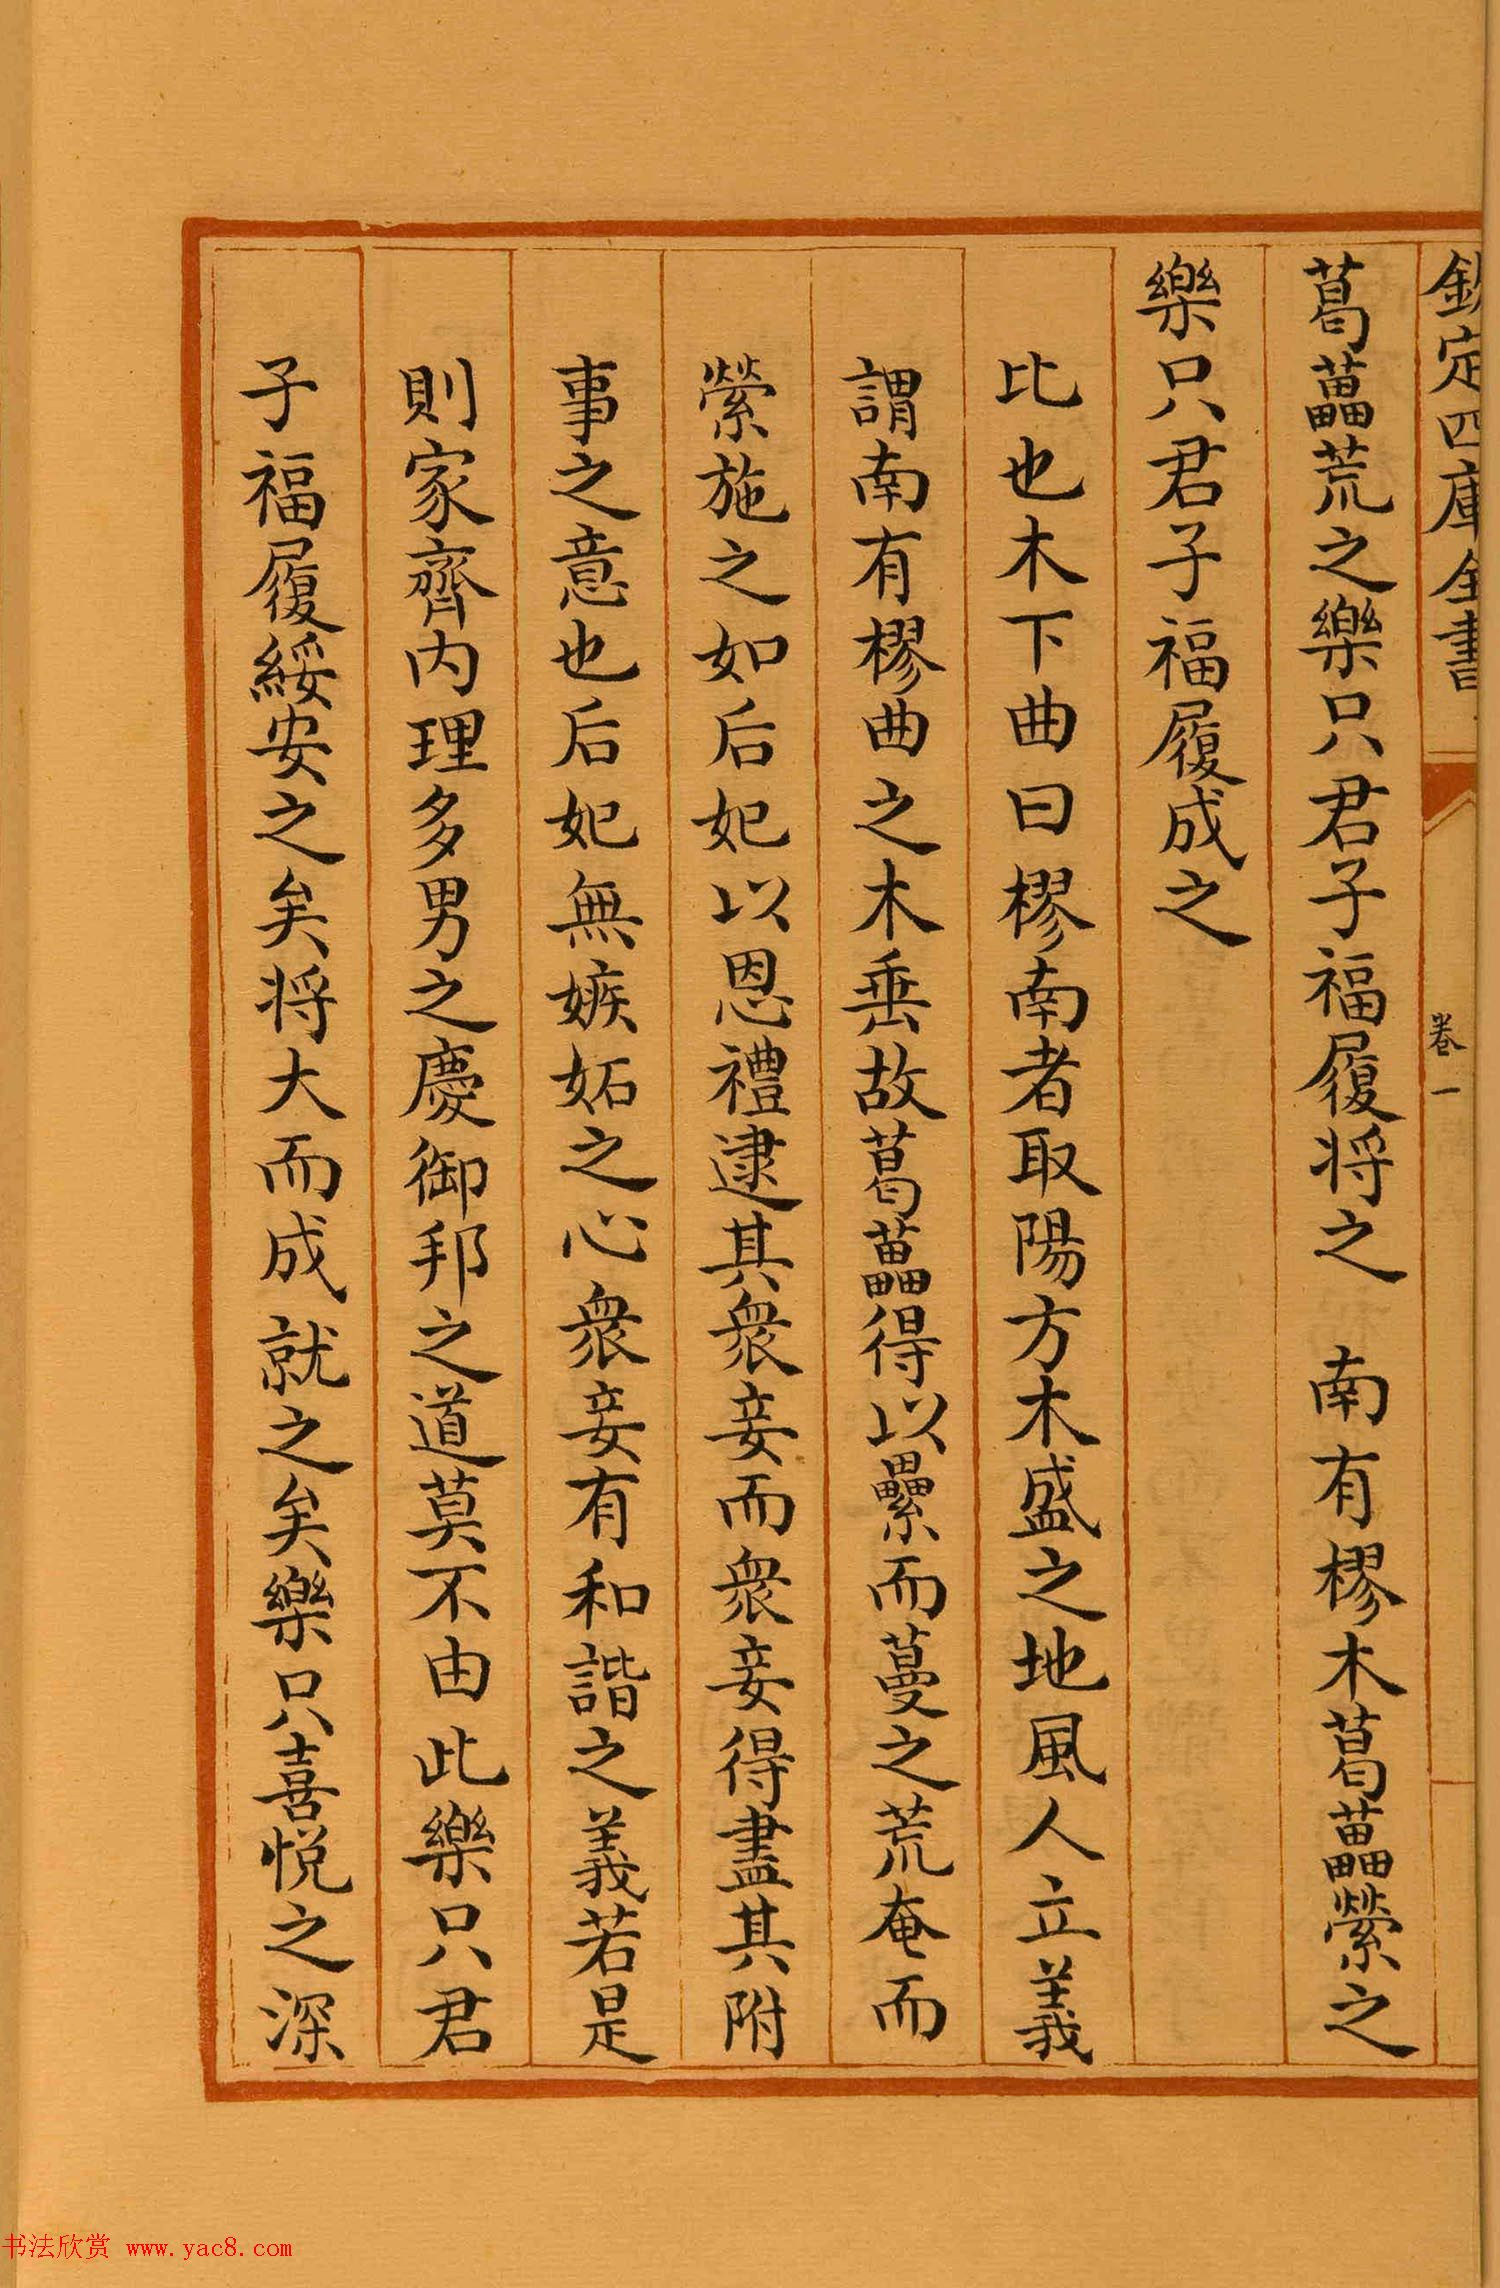 欽定四庫全書
卷一
葛藟荒之樂只君子福履将之　南有樛木葛藟縈之
樂只君子福履成之
比也木下曲曰樛南者取陽方木盛之地風人立義
謂南有樛曲之木垂故葛藟得以纍而蔓之荒奄而
縈施之如后妃以恩禮逮其衆妾而衆妾得盡其附
事之意也后妃無嫉妬之心衆妾有和諧之義若是
則家齊内理多男之慶御邦之道莫不由此樂只君
子福履綏安之矣将大而成就之矣樂只喜悅之深
书法欣赏 www.yac8.com